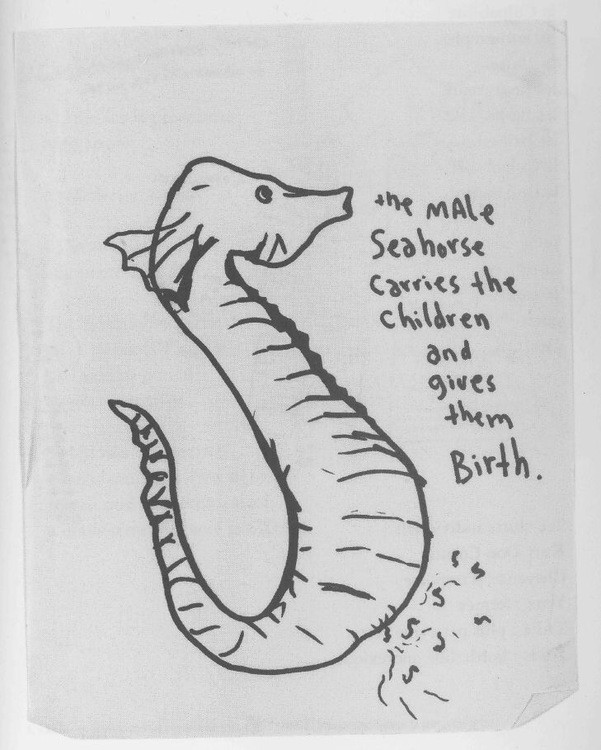 the MAle
Seahorse
carries the
children
and
gives
them
Birth.